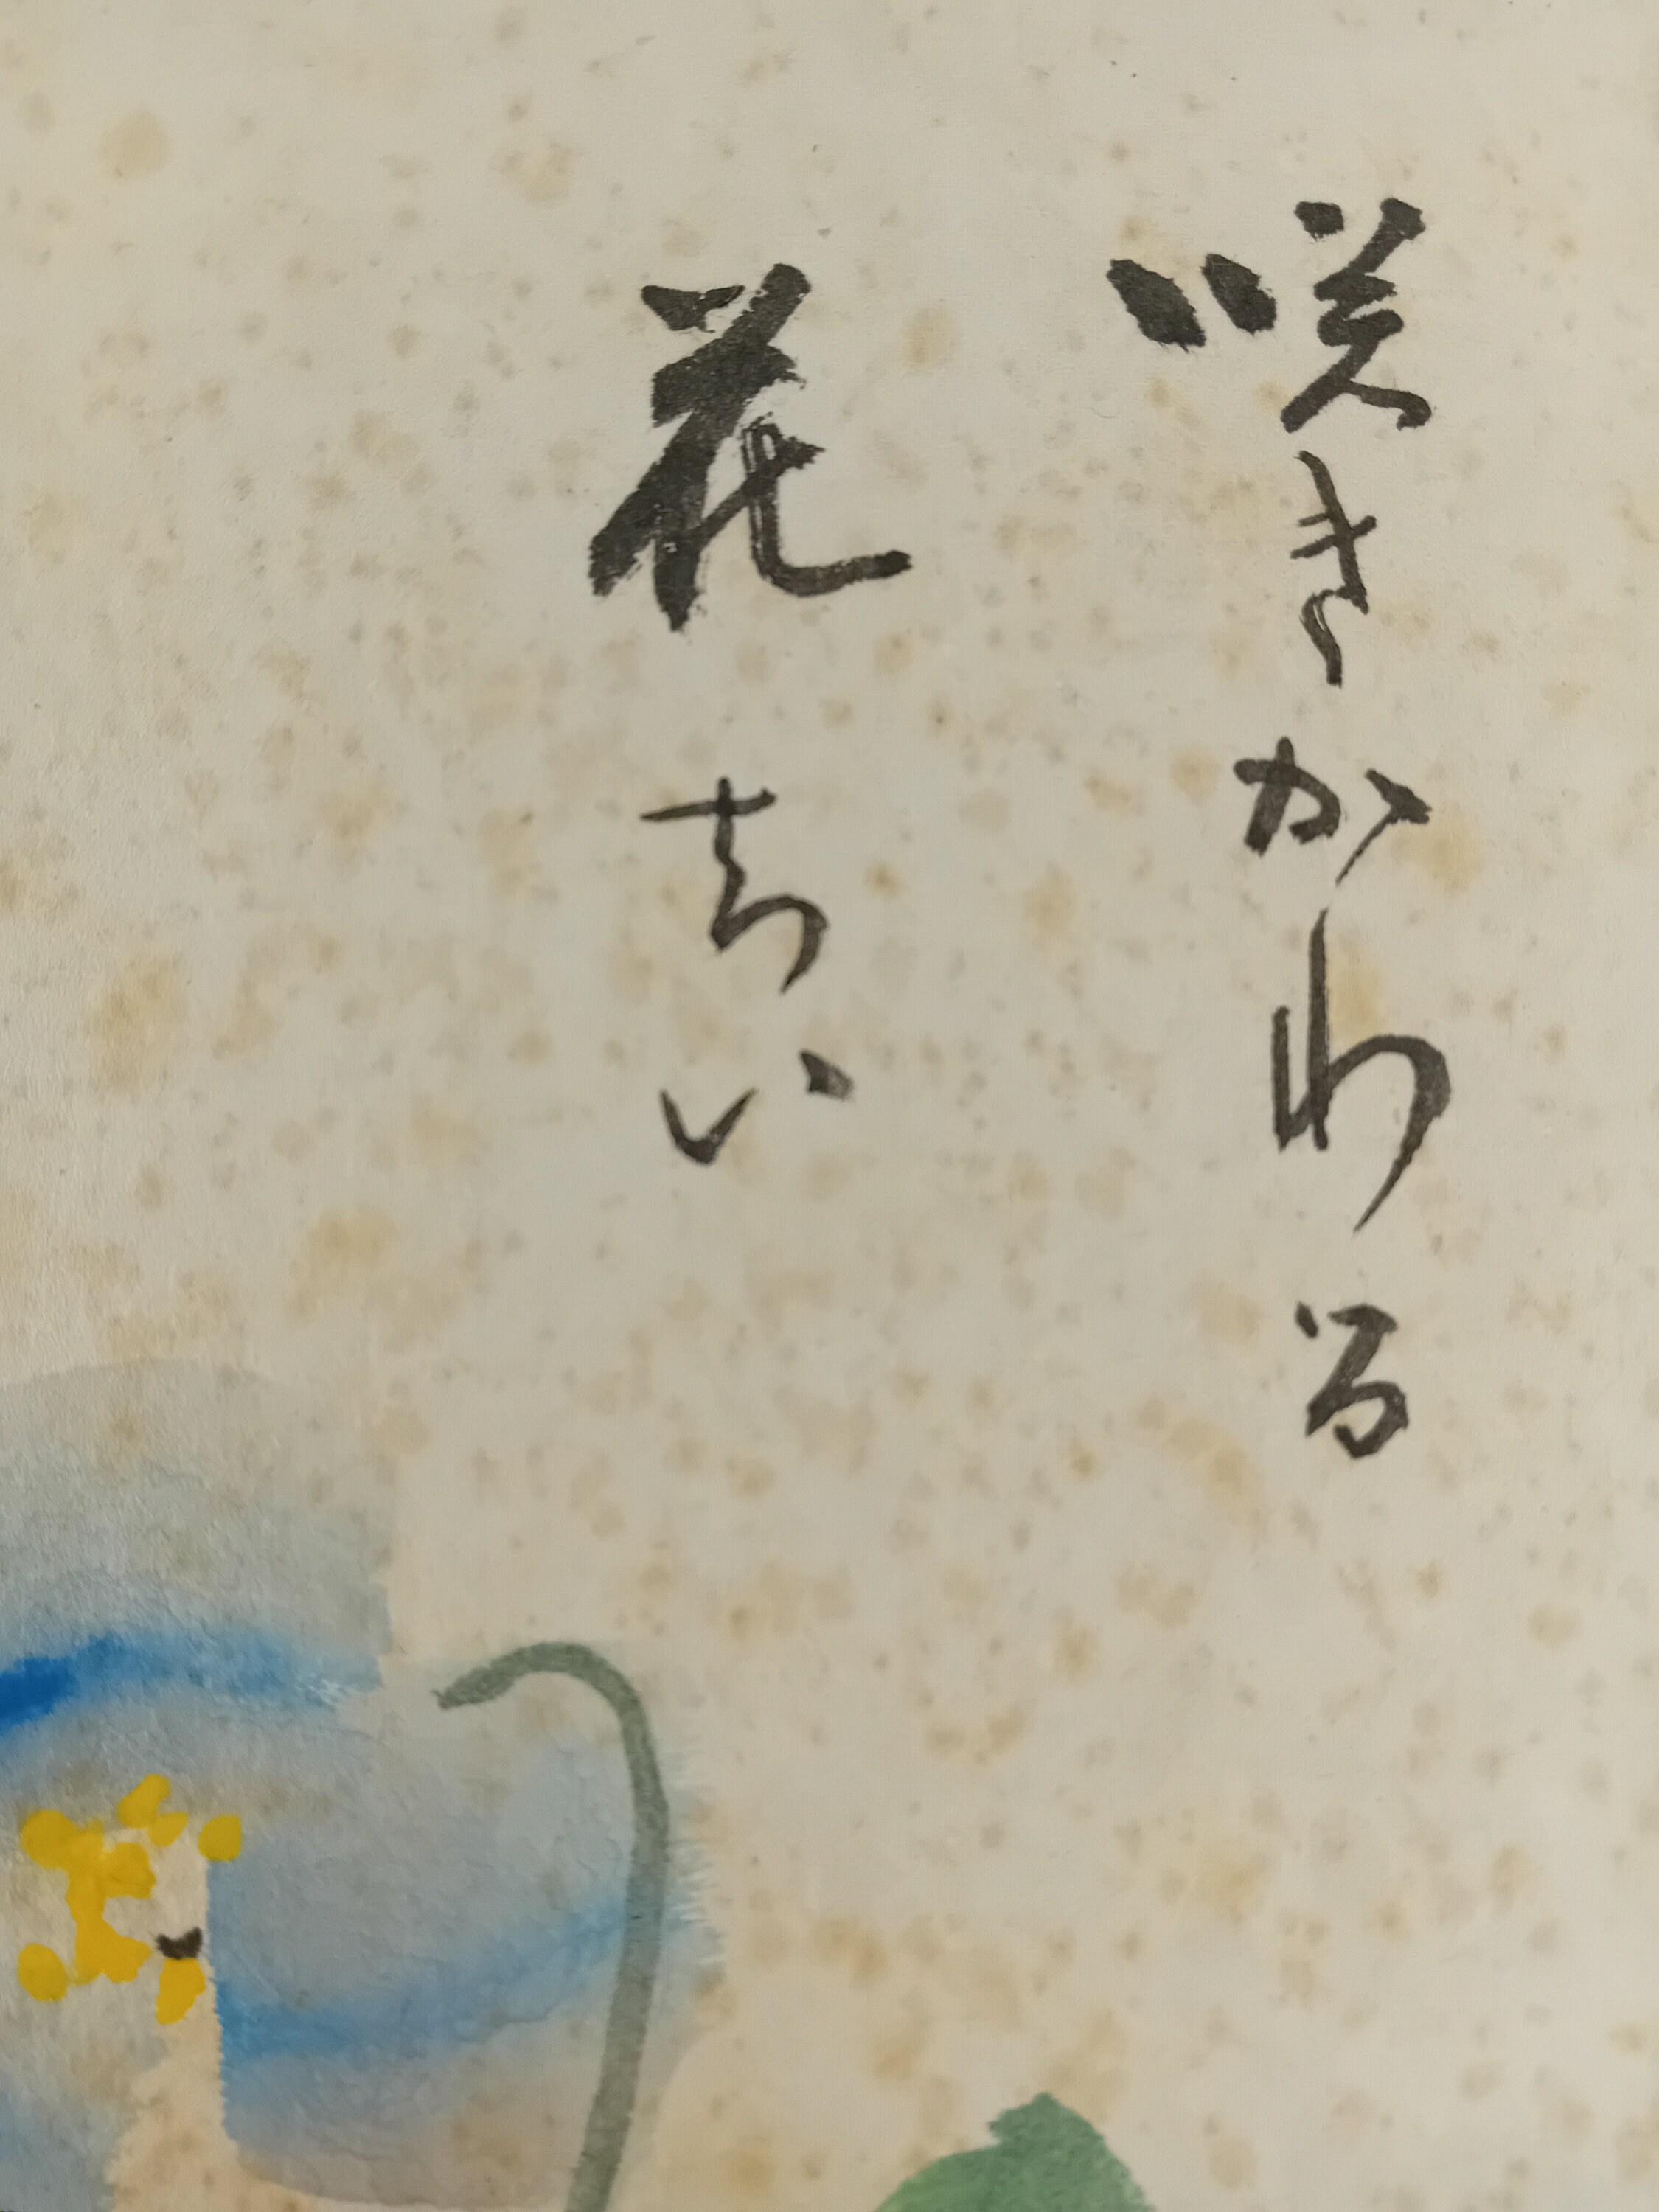 咲きかわる
花ちい